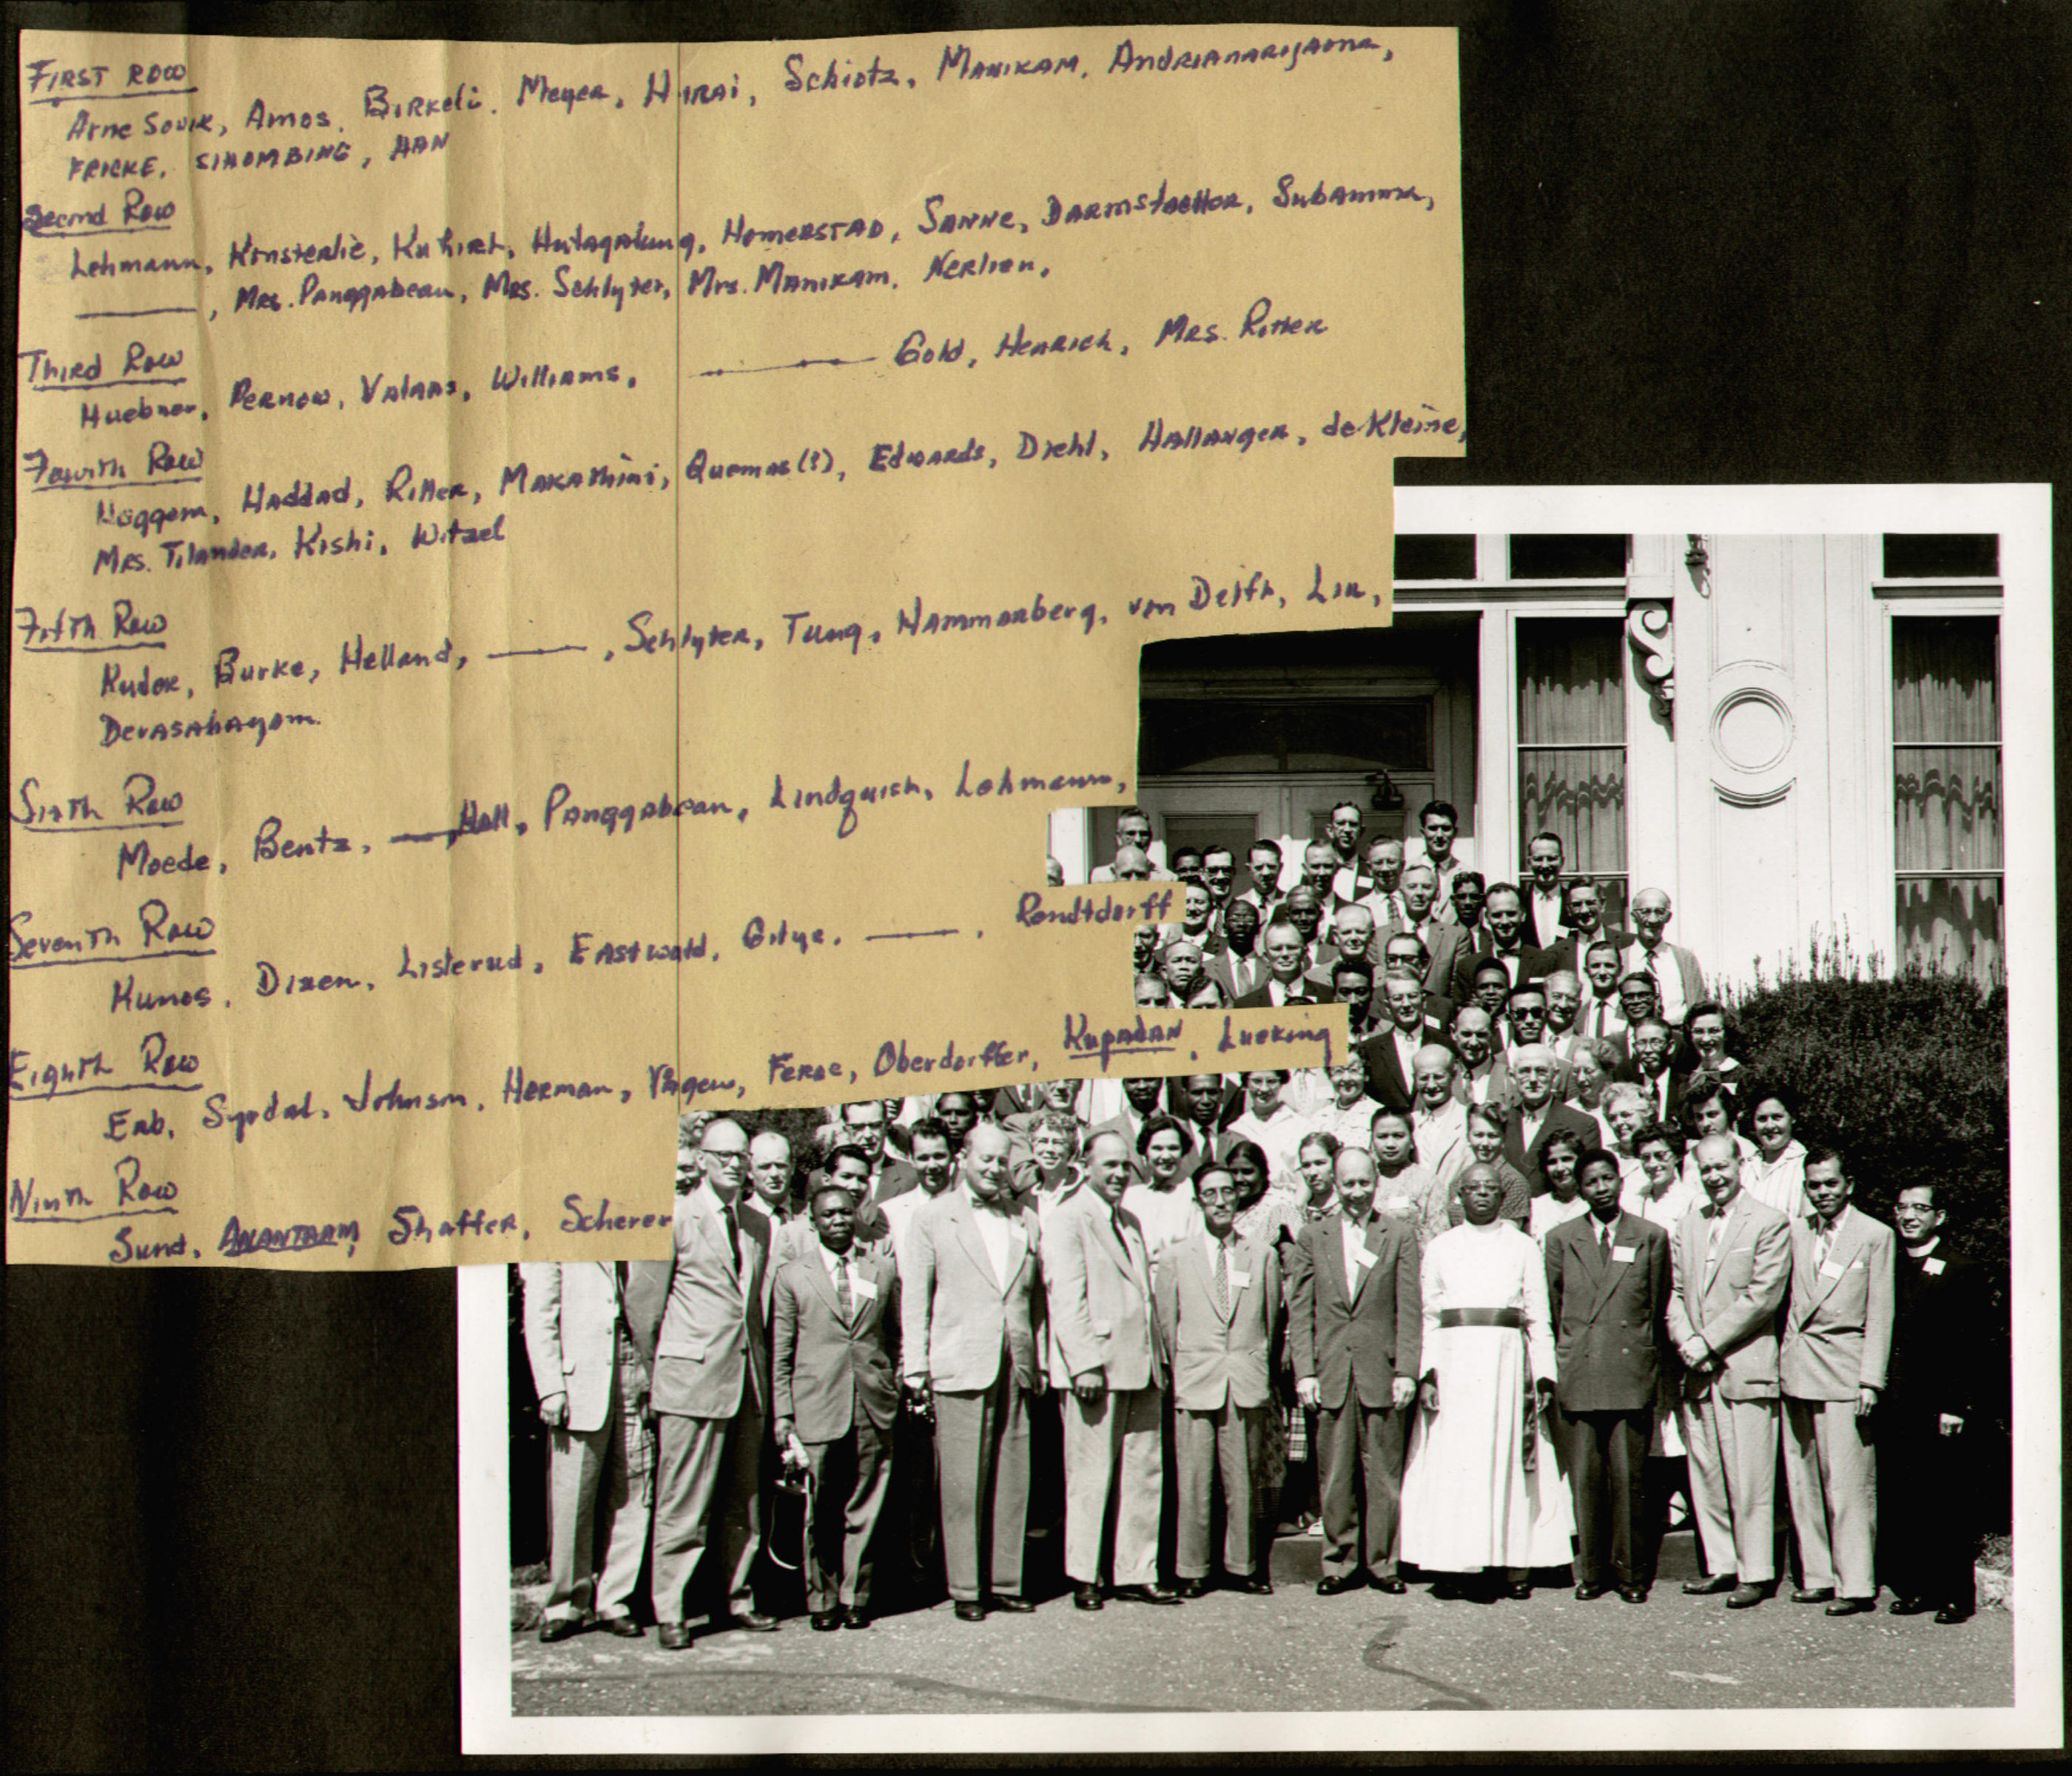 FIRST ROW
Arne Sovik, Amos, Birkeli, Meyer, Hirai, Schiotz, Manikam, Andrianarijaona,
FRICKE, SIHOMBING, HAN
Second Row
Lehmann, Konsterlie, Kuhirt, Hutagalung, Homerstad, Sanne, Darmstaetter,
, Mrs. Panggabean, Mrs. Schlyter, Mrs. Manikam, Nerlien.
Third Row
Huebner, Pernow, Valaas, Williams, Gold, Henrich, Mrs. Ritter
Fourth Row
Haddad, Ritter, Makathini, Quomas (?), Edwards, Diehl, Hallanger, de Kleine,
Mrs. Tilander, Kishi, Witzel
Fifth Row
Ruder, Burke, Helland, , Schlyter, Tung, Hammarberg, von Delft, Lin,
Devasahayam.
Sixth Row
Moede, Bentz, , Hall, Panggabean, Lindquist, Lohmann,
Seventh Row
Kunos, Dixen, Listerud, Eastwold, , Rendtdorff
Eighth Row
Erb, Syrdal, Johnson, Herman, Feroe, Oberdorffer, Kupadan, Lueking
Ninth Row
Sund, Anantaam, Shaffer, Scherer